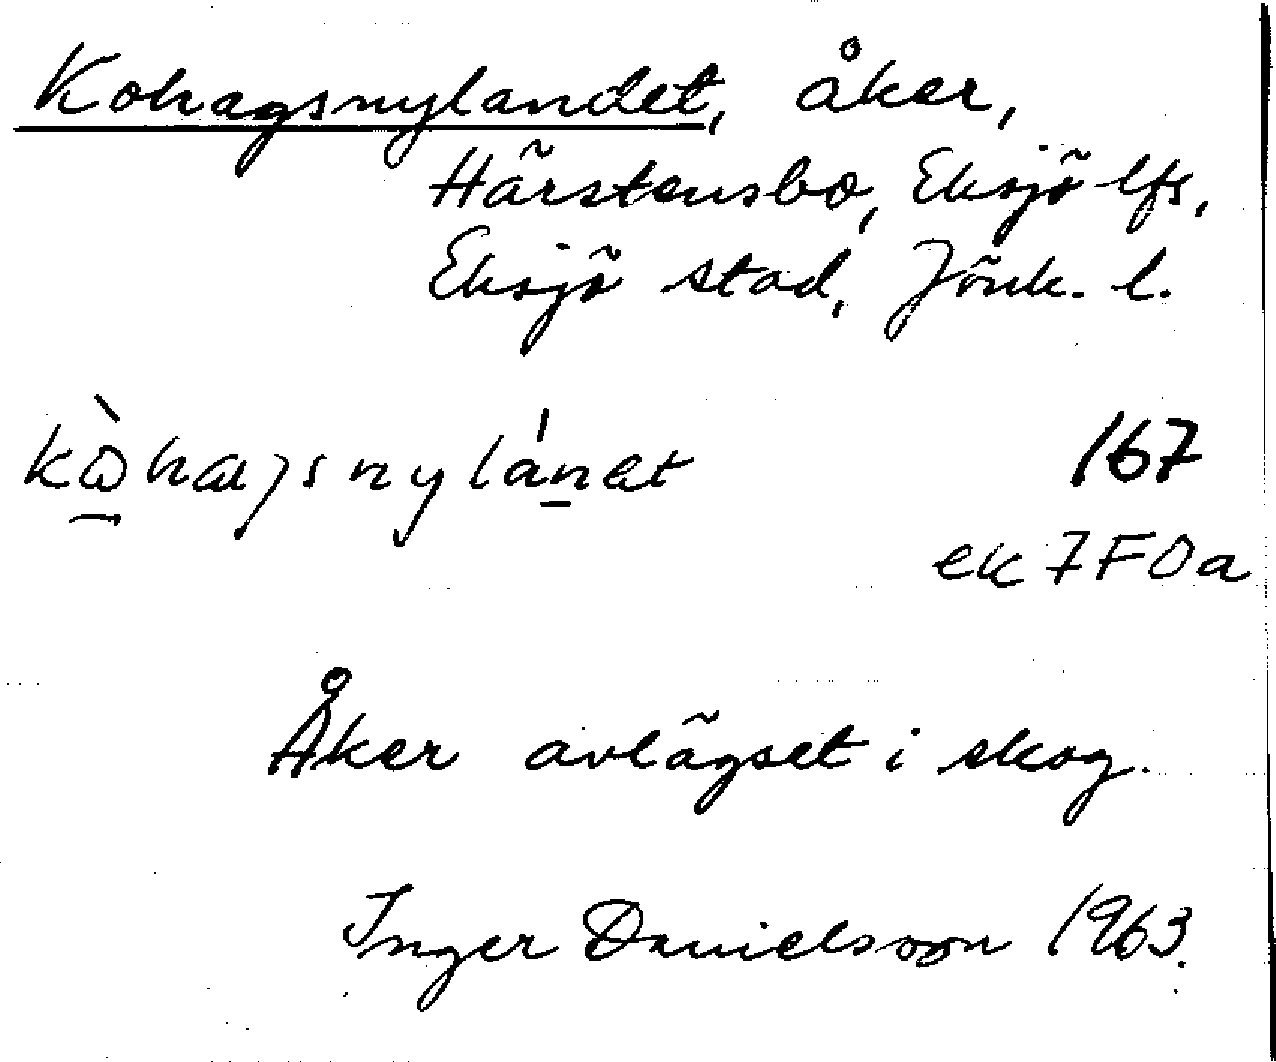 Kohagsnylandet, åker,
Härstensbo, Eksjö lfs,
Eksjö stad, Jönk. l.
167
ek 7F0a
Åker avlägset i skog.
Inger Danielsson 1963.